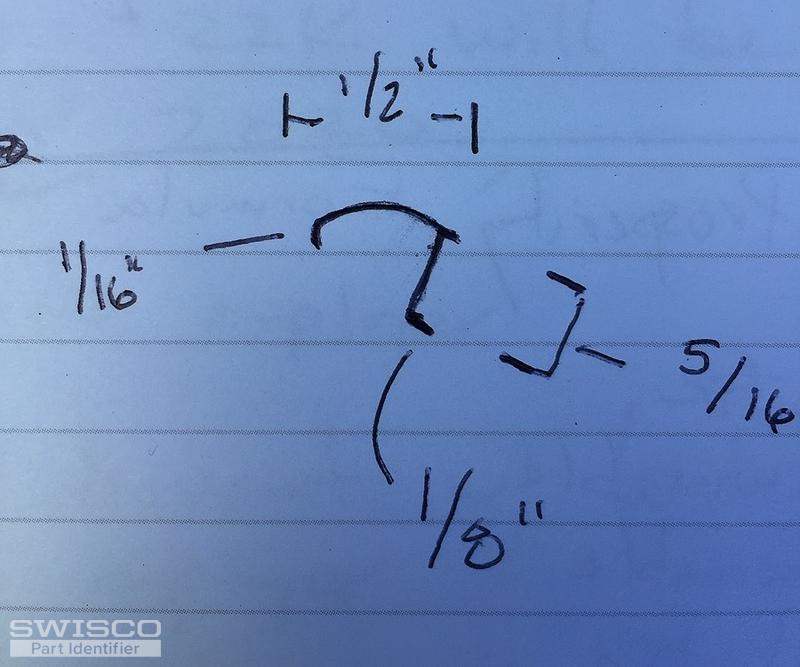 1/2"
1/16"
5/16
1/8"
SWISCO
Part Identifier